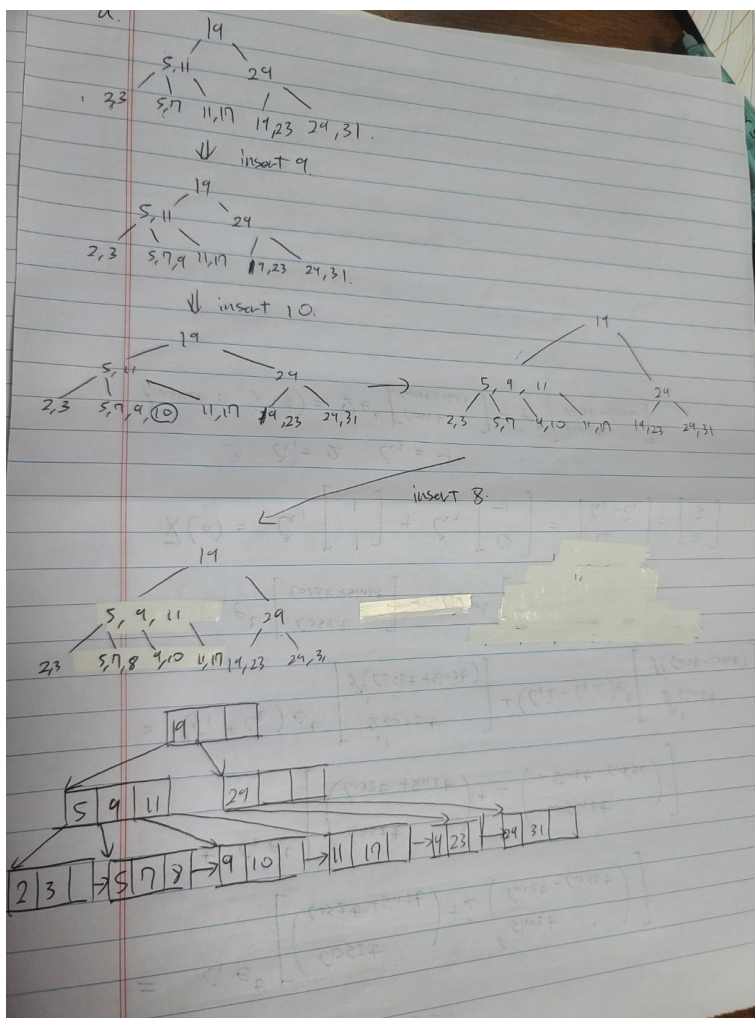 a.
19
5,11 29
2,3 5,7 11,17 19,23 29,31.
⇓ insert 9.
19
5,11 29
2,3 5,7,9 11,17 19,23 29,31.
⇓ insert 10.
19
5,11 29
2,3 5,7,9,10 11,17 19,23 29,31
→
19
5, 9, 11 29
2,3 5,7 9,10 11,17 19,23 29,31
insert 8.
19
5, 9, 11 29
2,3 5,7,8 9,10 11,17 19,23 29,31
19
5 9 11 29
2 3 → 5 7 8 → 9 10 → 11 17 → 19 23 → 29 31